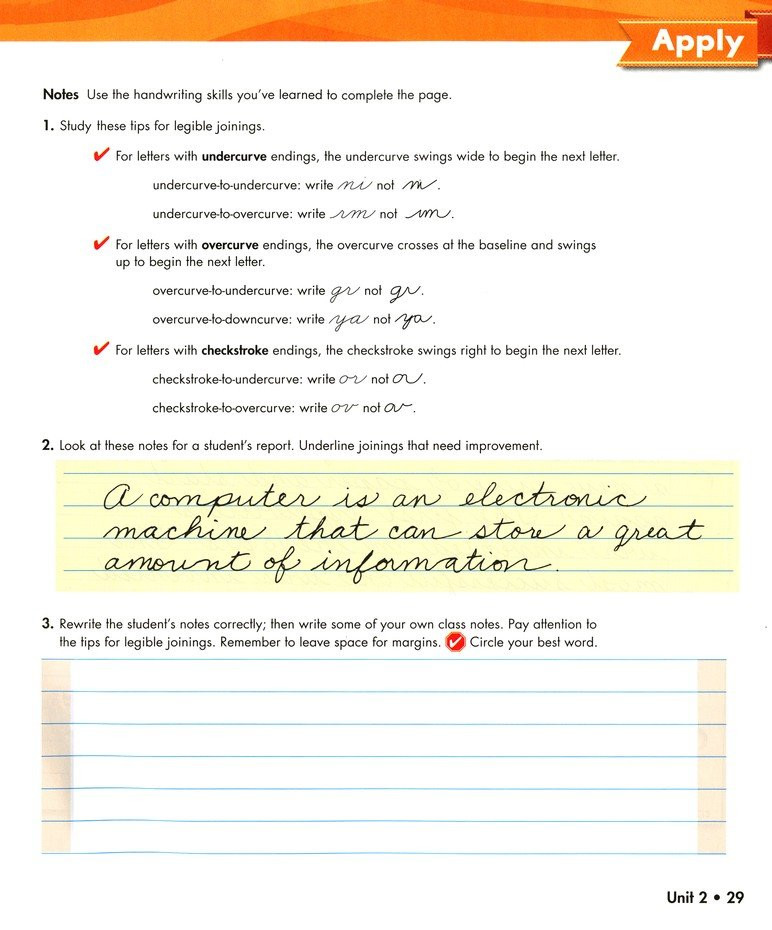 Apply
Notes Use the handwriting skills you've learned to complete the page.
1. Study these tips for legible joinings.
✔ For letters with undercurve endings, the undercurve swings wide to begin the next letter.
undercurve-to-undercurve: write ni not ni.
undercurve-to-overcurve: write rm not rm.
✔ For letters with overcurve endings, the overcurve crosses at the baseline and swings
up to begin the next letter.
overcurve-to-undercurve: write gr not gr.
overcurve-to-downcurve: write ya not ya.
✔ For letters with checkstroke endings, the checkstroke swings right to begin the next letter.
checkstroke-to-undercurve: write or not or.
checkstroke-to-overcurve: write ov not ov.
2. Look at these notes for a student's report. Underline joinings that need improvement.
A computer is an electronic
machine that can store a great
amount of information.
3. Rewrite the student's notes correctly; then write some of your own class notes. Pay attention to
the tips for legible joinings. Remember to leave space for margins. ✔ Circle your best word.
Unit 2 • 29